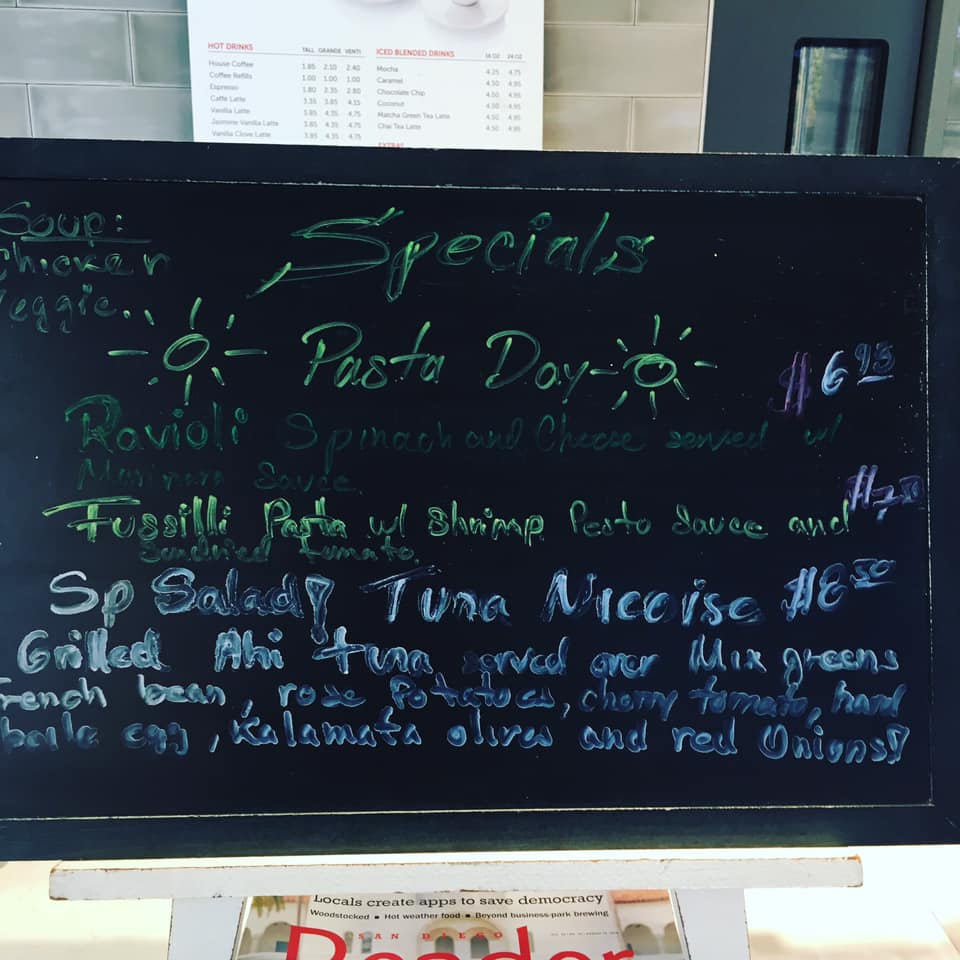 HOT DRINKS TALL GRANDE VENTI
House Coffee 1.85 2.10 2.40
Coffee Refills 1.00 1.00 1.00
Espresso 1.80 2.35 2.80
Caffè Latte 3.35 3.85 4.15
Vanilla Latte 3.85 4.35 4.75
Jasmine Vanilla Latte 3.85 4.35 4.75
Vanilla Clove Latte 3.85 4.35 4.75
ICED BLENDED DRINKS 16 OZ 24 OZ
Mocha 4.25 4.75
Caramel 4.50 4.95
Chocolate Chip 4.50 4.95
Coconut 4.50 4.95
Matcha Green Tea Latte 4.50 4.95
Chai Tea Latte 4.50 4.95
EXTRAS
Soup:
Chicken
Veggie..
Specials
Pasta Day
$6.95
Ravioli Spinach and Cheese served w/
Marinara Sauce
Fussilli Pasta w/ shrimp Pesto Sauce and
Sundried tomato.
Sp Salad! Tuna Nicoise $8.50
Grilled Ahi tuna served over Mix greens
French bean, rose Potatoes, cherry tomato, hard
boile egg, Kalamata olives and red Onions!
Locals create apps to save democracy
Woodstocked ■ Hot weather food ■ Beyond business-park brewing
SAN DIEGO
Reader